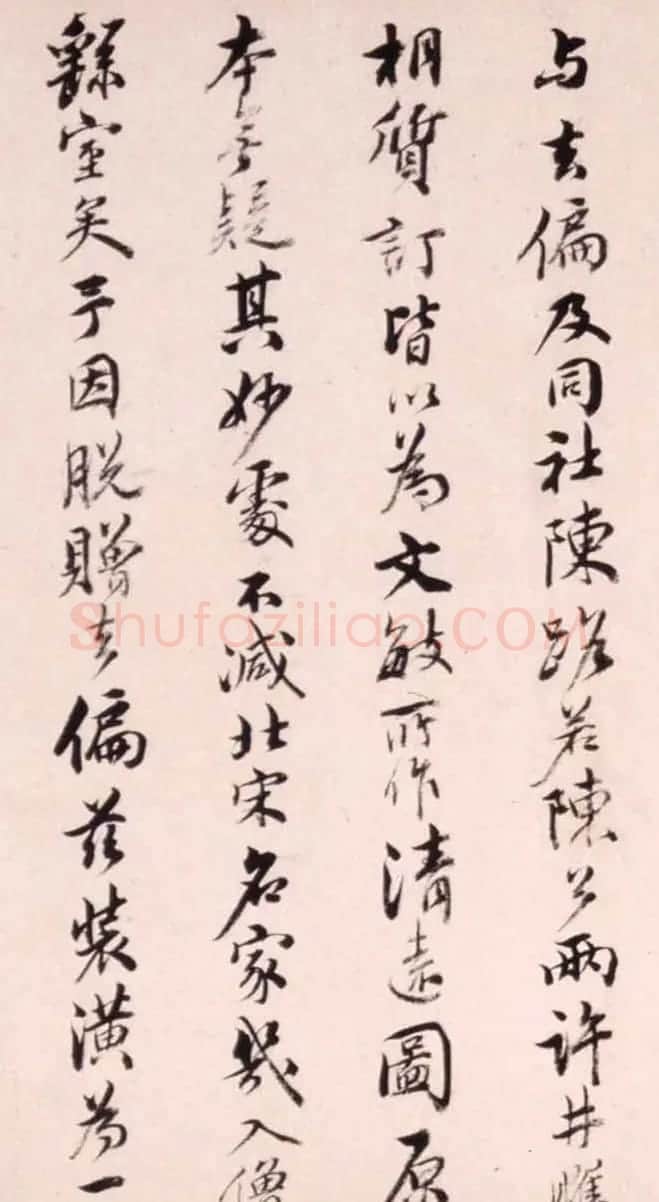 与去偏及同社陳路若陳公兩許井
相質訂皆以為文敏所作清遠圖原
本無疑其妙處不減北宋名家幾入僧
繇室矣予因脱贈去偏茲裝潢為一
Shufaziliao.COM